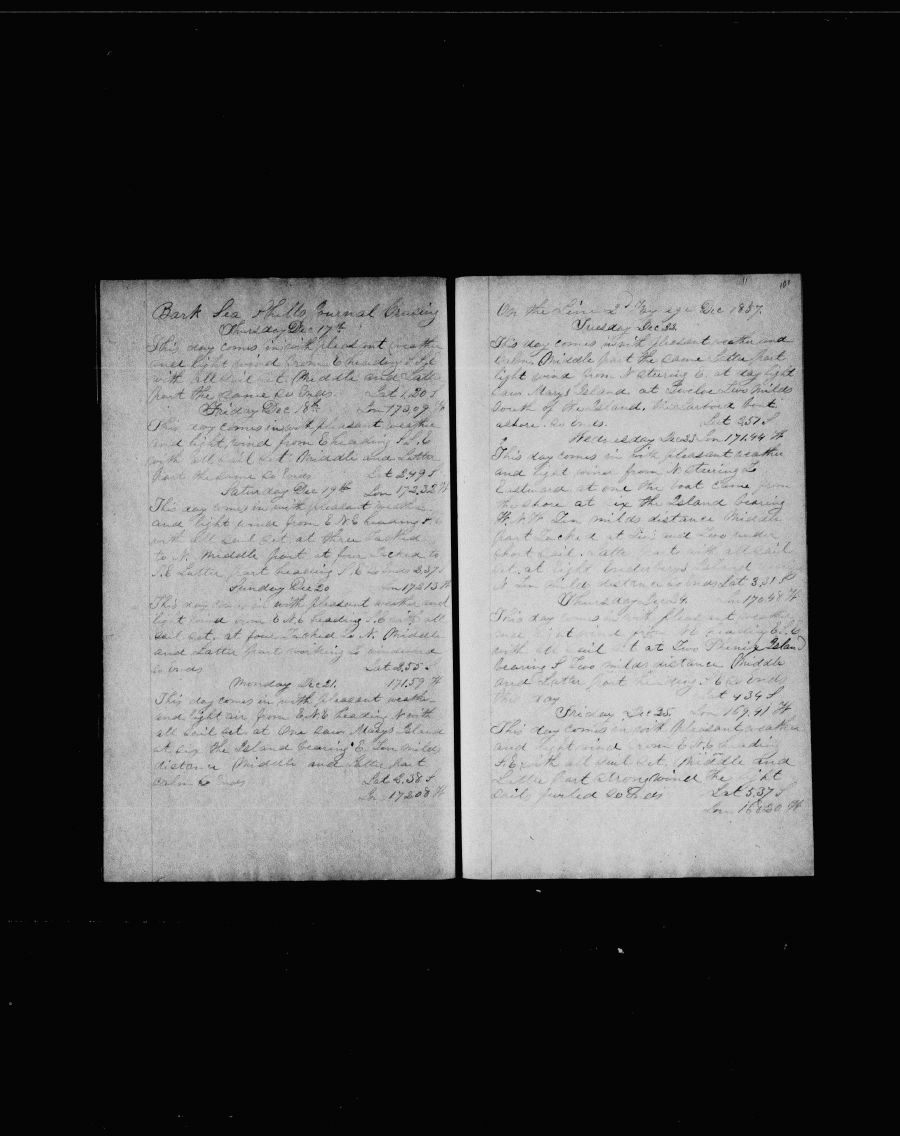 Bark Sea Journal Cruising
Thursday Dec 17th
This day comes in with pleasent weather
and light wind from E heading S S E
with all sail set. Middle and Latter
Part the same So Ends. Lat 1,20 S
Friday Dec 18th Lon 173,09 W
This day comes in with pleasant weather
and light wind from E heading S.S.E
with all sail set. Middle and Latter
Part the same So Ends Lat 2,49 S
Saturday Dec 19th Lon 172,32 W
This day comes in with pleasant weather
and light wind from E N E heading S.E
with all sail set at three tacked
to N. Middle part at four Tacked to
S.E Latter part heading S.E so ends 2.37 S
Sunday Dec 20 Lon 172 13 W
This day comes in with pleasant weather and
light wind from E N.E heading S.E with all
sail set. at four Tacked to N. Middle
and Latter part working to windward
so ends Lat 2,55 S
Monday Dec 21. 171.59 W
This day comes in with pleasant weather
and light air from E.N.E heading N with
all sail set at One saw Marys Island
at six the Island bearing E Ten milds
distance Middle and Latter part
calm So Ends Lat 2.58 S
Lon 172 08 W
On the Line 2d Voyage Dec 1857.
101
Tuesday Dec 22.
This day comes in with pleasent weather and
Calm Middle part the same Latter part
light wind from N Stering E. at day light
saw Marys Island at Twelve Two milds
South of the Island. the Larbord boat
ashore. So ends. Lat 2.51 S
Wednesday Dec 23 Lon 171.44 W
This day comes in with pleasant weather
and light wind from N Stering to
Eastward at one the boat came from
the shore at six the Island bearing
W.N.W. Ten milds distance Middle
part Tacked at Ten and Two under
short sail. Latter part with all sail
set. at light Enderburys Island
N Ten milds distance so ends Lat 3.31 S
Thursday Dec 24. Lon 170.48 W
This day comes in with pleasant weather
and light wind from heading E.S.E
with all sail set at Two Phenix Island
bearing S Two milds distance Middle
and Latter part heading S E so ends
this day Lat 4 34 S
Friday Dec 25. Lon 169.41 W
This day comes in with pleasant weather
and light wind from E N.E heading
S.E. with all sail set. Middle and
Latter Part strong wind the light
sails furled So Ends Lat 5.37 S
Lon W